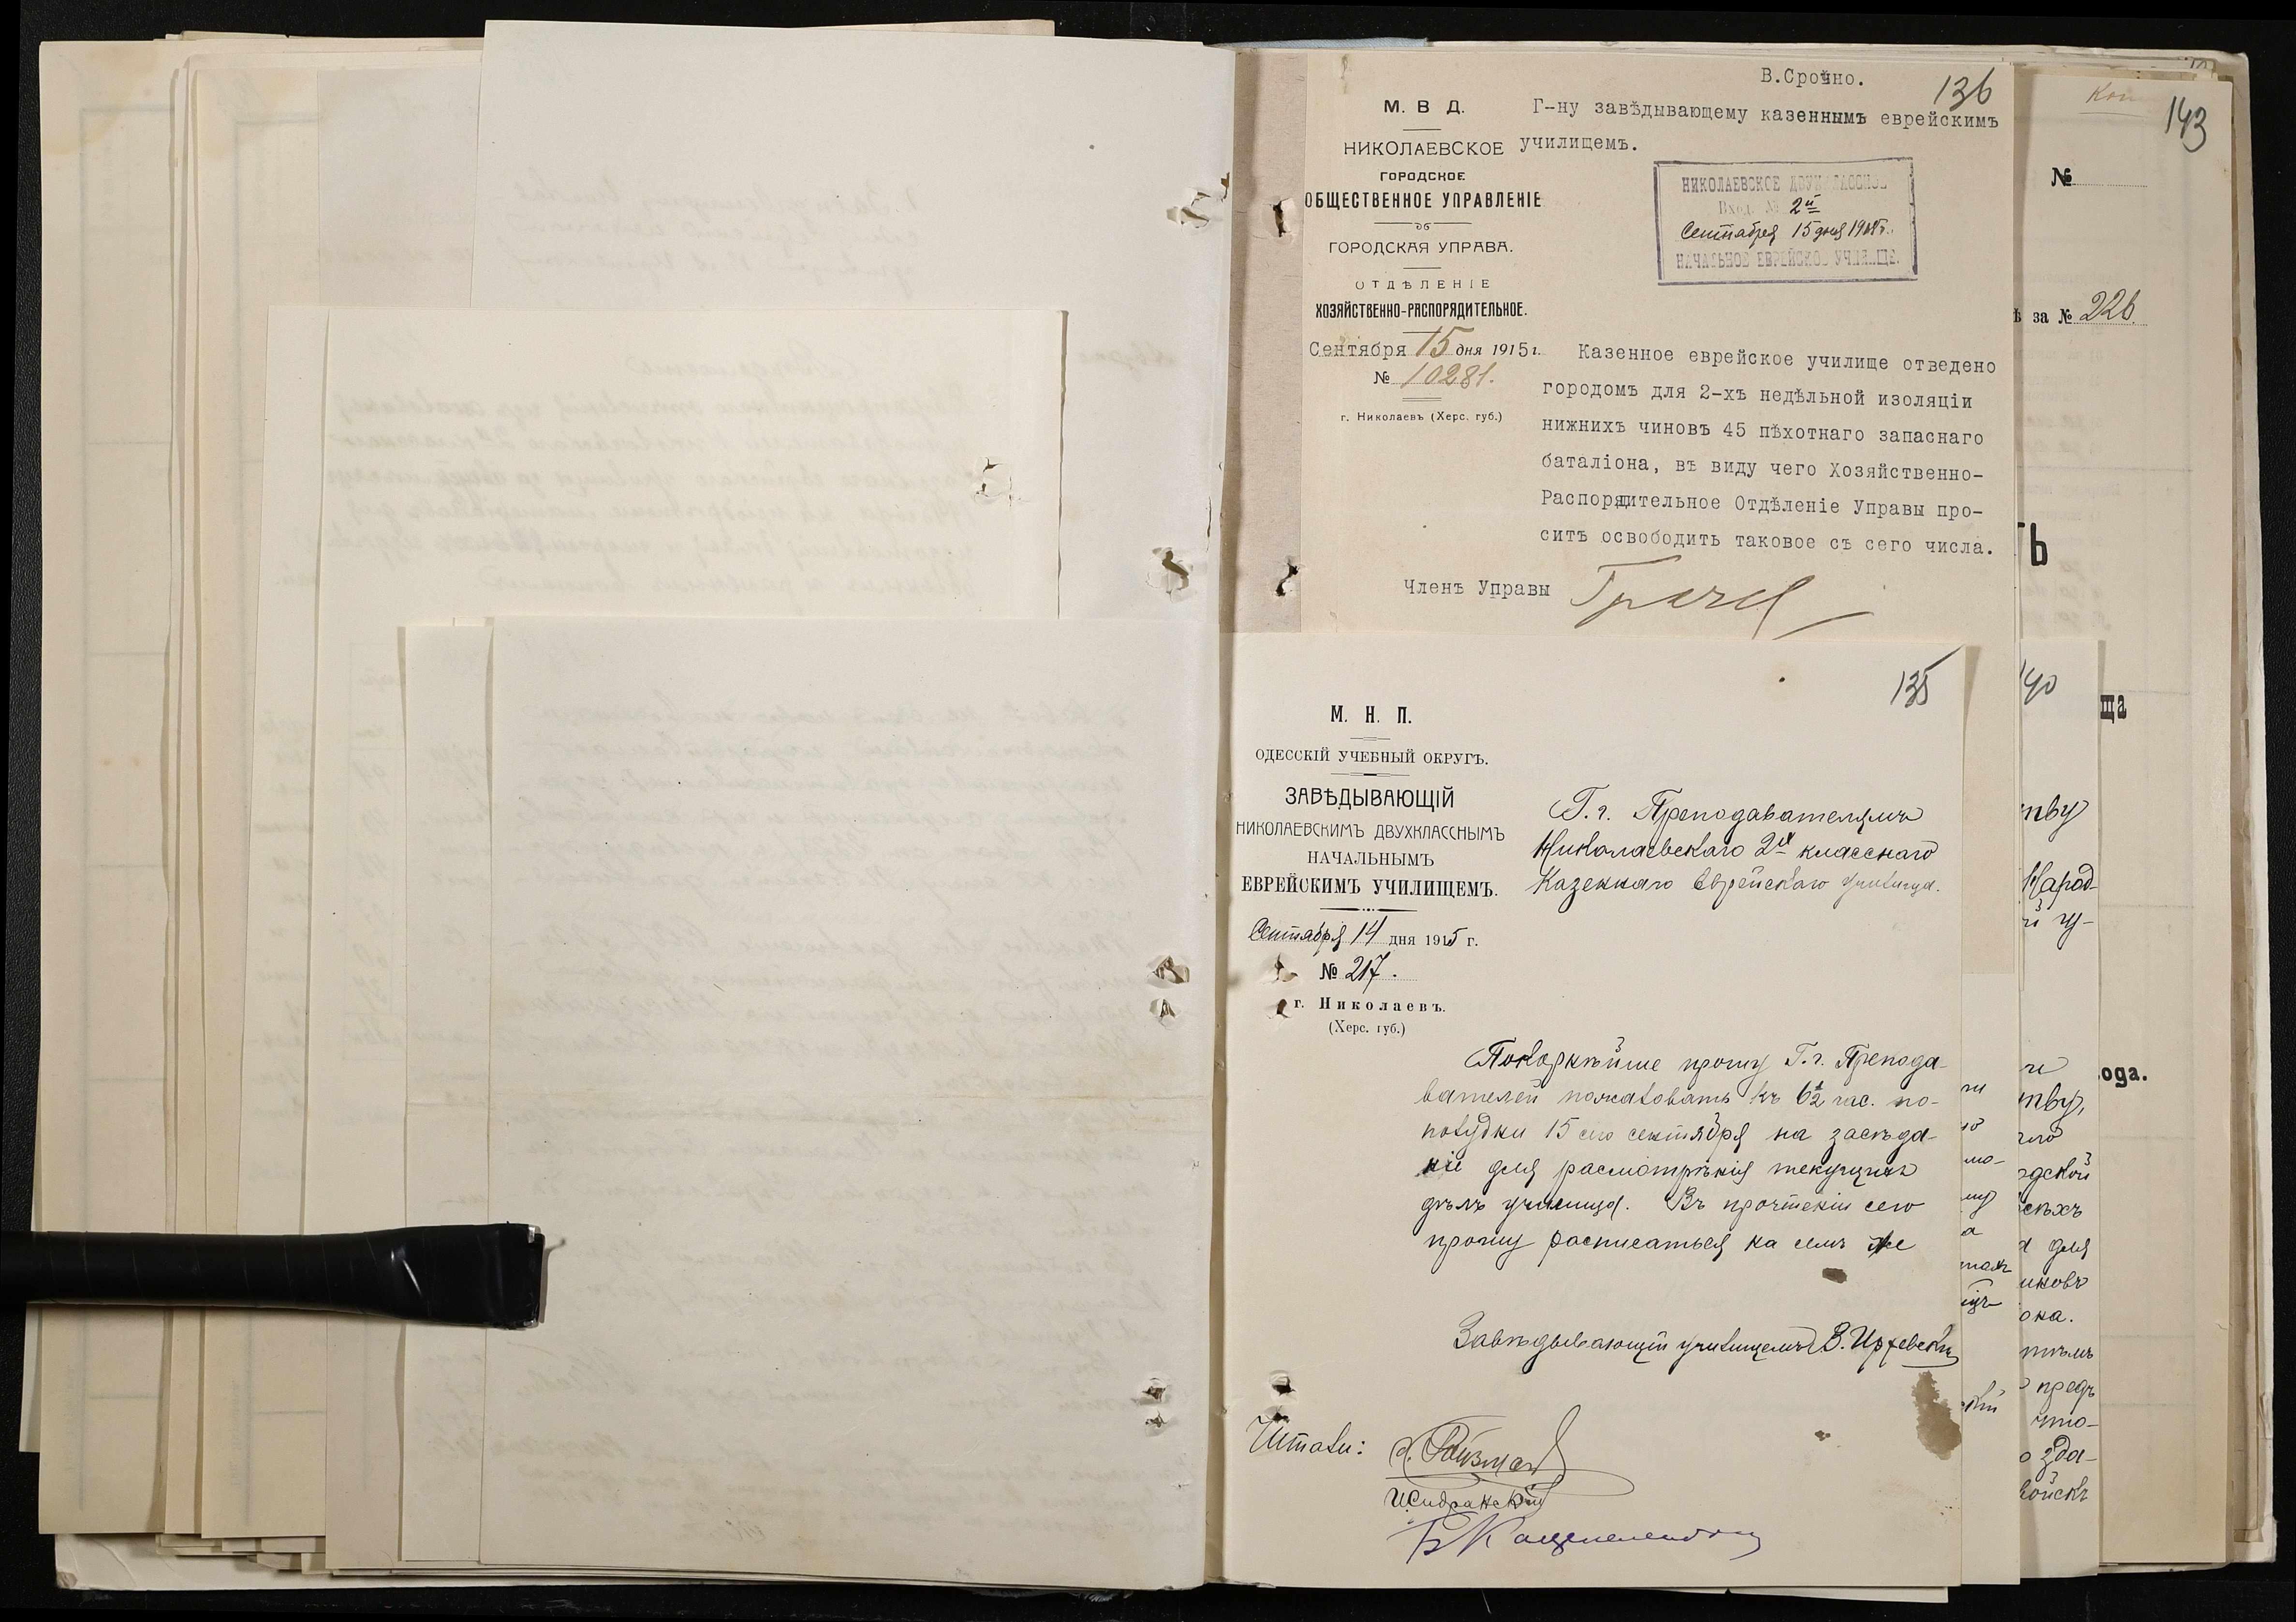 В.Срочно.
136
М. В Д.
НИКОЛАЕВСКОЕ
ГОРОДСКОЕ
ОБЩЕСТВЕННОЕ УПРАВЛЕНІЕ
ГОРОДСКАЯ УПРАВА.
ОТДѢЛЕНІЕ
ХОЗЯЙСТВЕННО-РАСПОРЯДИТЕЛЬНОЕ.
Сентября 15 дня 1915 г.
№ 10281.
г. Николаевъ (Херс. губ.)
Г-ну завѣдывающему казеннымъ еврейскимъ
училищемъ.
НИКОЛАЕВСКОЕ ДВУХКЛАССНОЕ
Вход. № 2й
Сентября 15 дня 1915 г.
НАЧАЛЬНОЕ ЕВРЕЙСКОЕ УЧИЛИЩЕ.
Казенное еврейское училище отведено
городомъ для 2-хъ недѣльной изоляціи
нижнихъ чиновъ 45 пѣхотнаго запаснаго
баталіона, въ виду чего Хозяйственно-
Распорядительное Отдѣленіе Управы про-
ситъ освободить таковое съ сего числа.
Членъ Управы
135
М. Н. П.
ОДЕССКІЙ УЧЕБНЫЙ ОКРУГЪ.
ЗАВѢДЫВАЮЩІЙ
НИКОЛАЕВСКИМЪ ДВУХКЛАССНЫМЪ
НАЧАЛЬНЫМЪ
ЕВРЕЙСКИМЪ УЧИЛИЩЕМЪ.
Сентября 14 дня 1915 г.
№ 217.
г. Николаевъ.
(Херс. губ.)
Г.г. Преподавателямъ
Николаевскаго 2х класснаго
Казеннаго Еврейскаго училища.
Покорнѣйше прошу Г.г. Препода-
вателей пожаловать къ 6½ час. по-
полудни 15 сего сентября на засѣда-
ніе для расмотрѣнія текущихъ
дѣлъ училища. Въ прочтеніи сего
прошу расписаться на семъ же
Завѣдывающій училищемъ В.
Читали:
143
№
ѣ за № 226.
ТЬ
140
ща
ода.
тву
Народ-
тву,
дской
для
иковъ
ока.
предъ
что-
зда-
войскъ